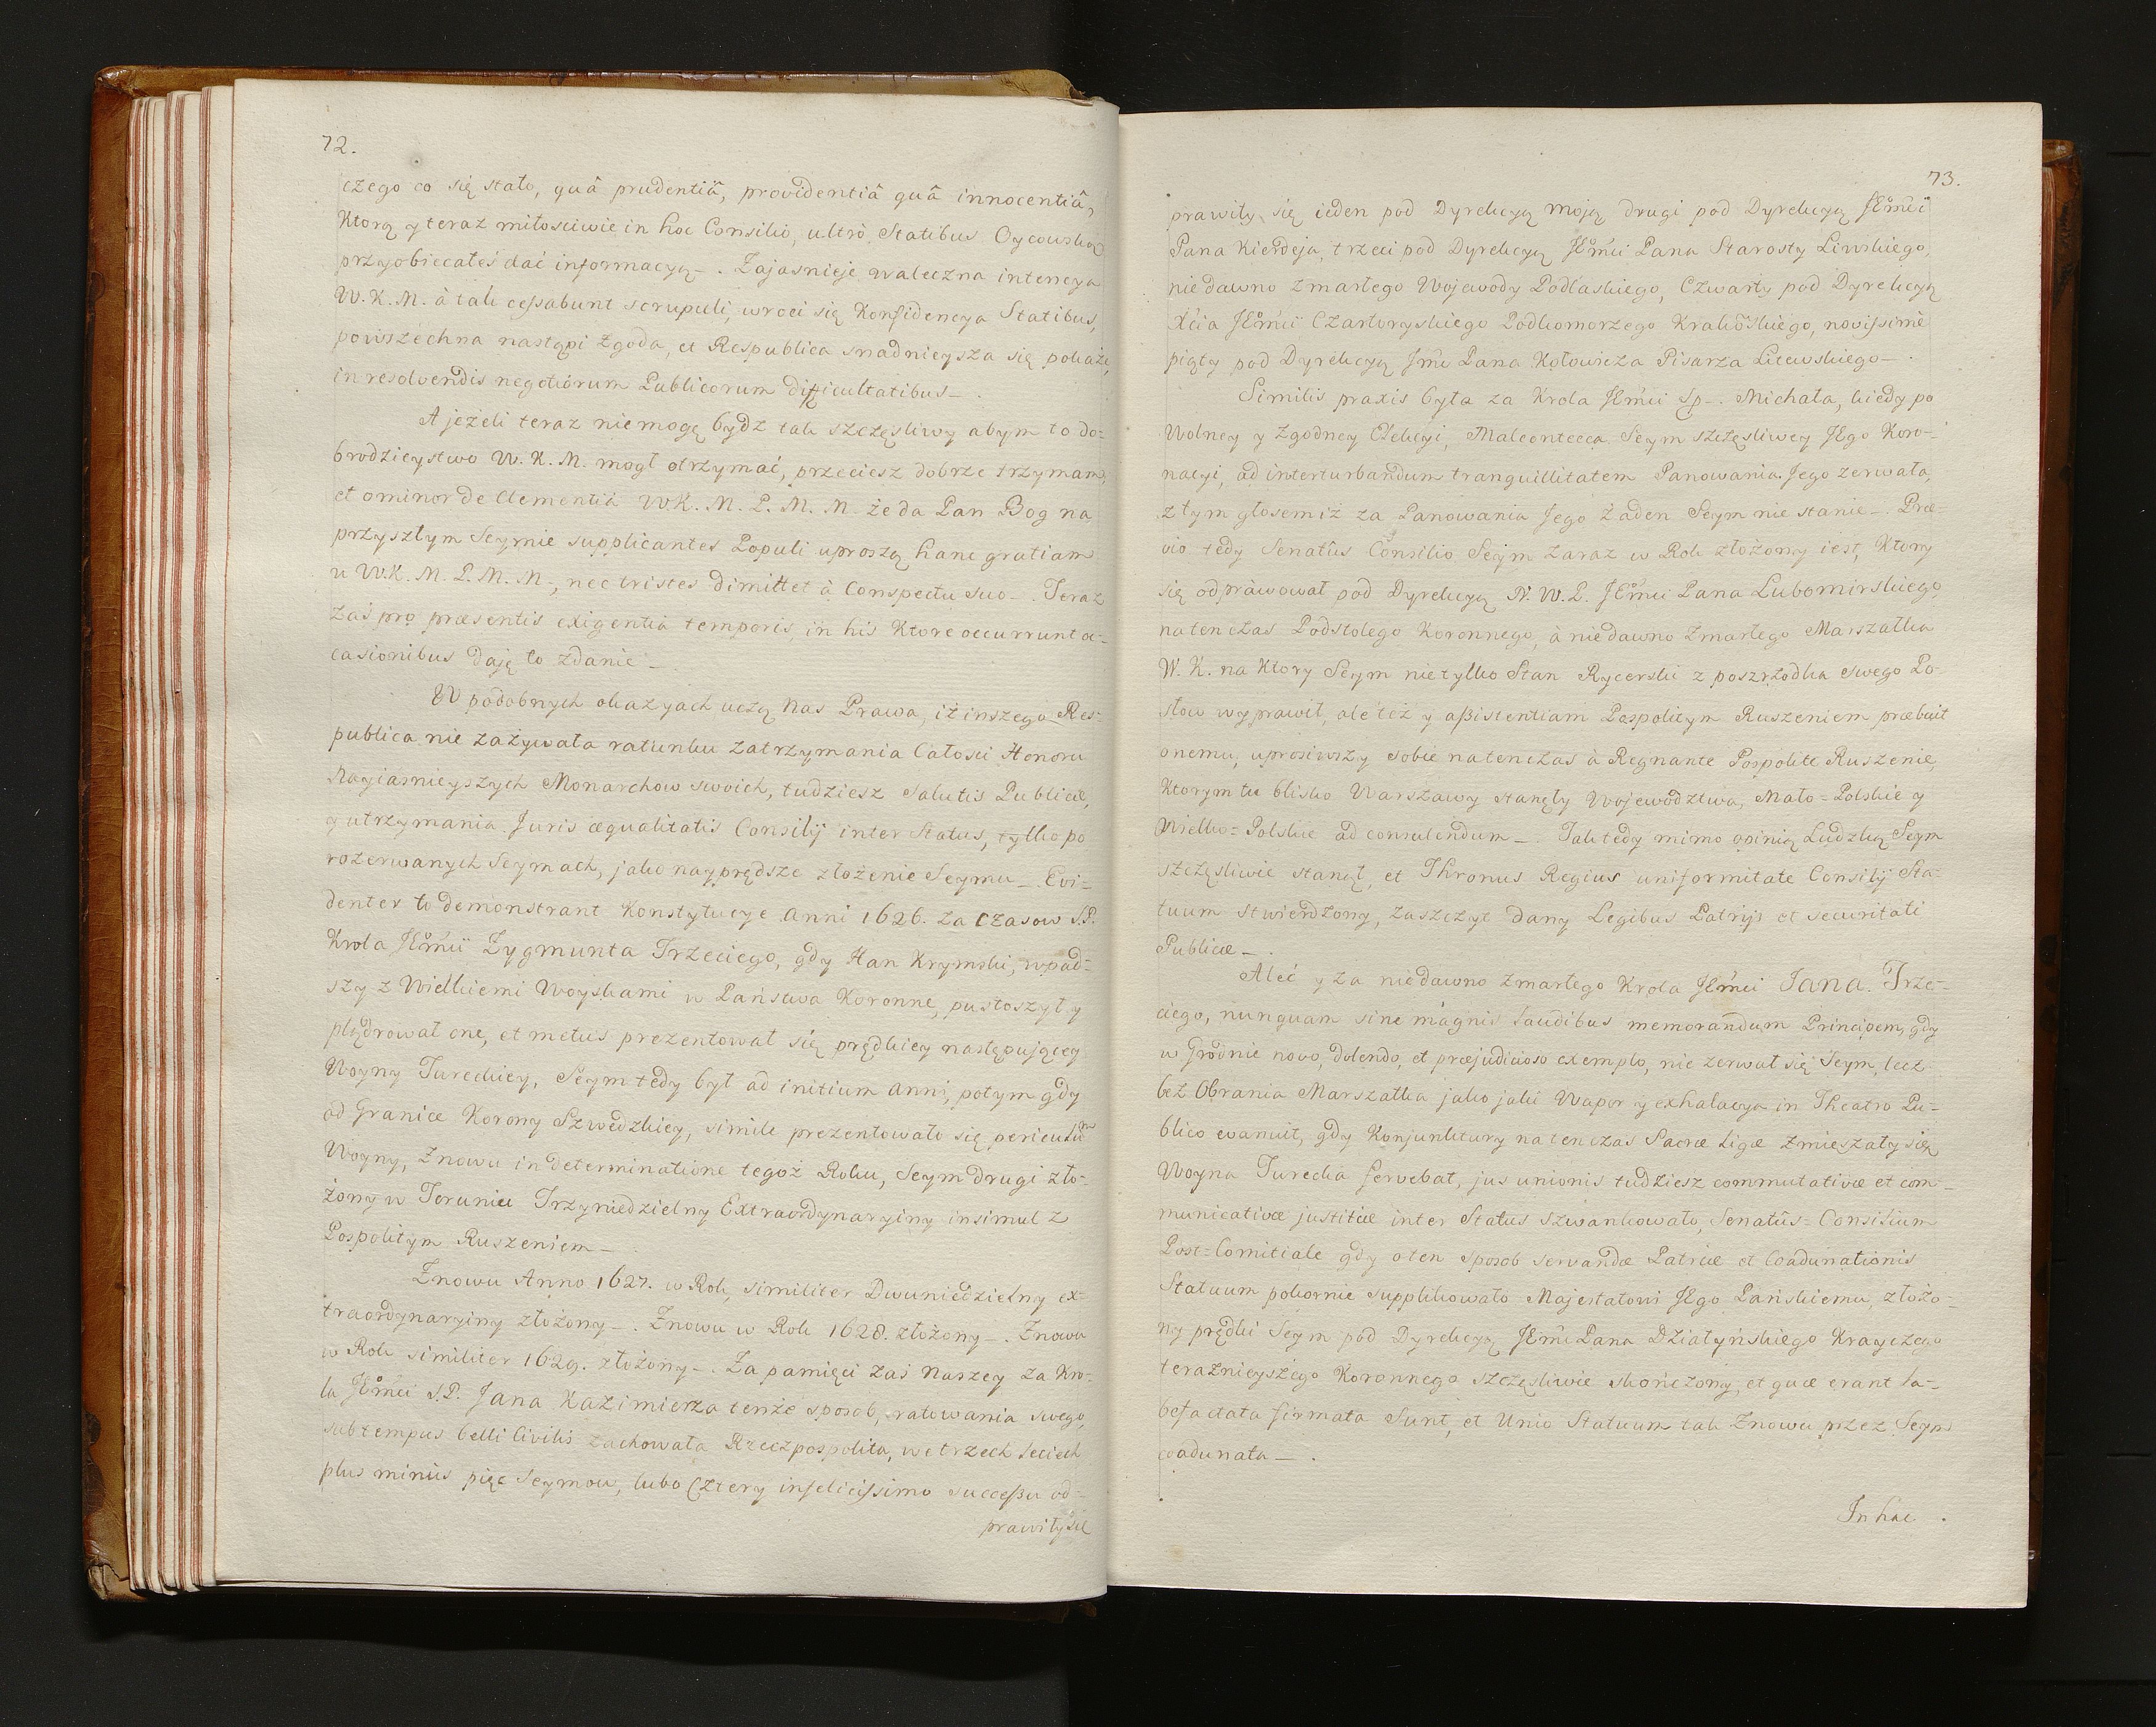 72.
czego co się stało, quâ prudentiâ, providentiâ quâ innocentiâ,
Ktorą y teraz miłosciwie in hoc Consilio, ultrò Statibus Oycowską
przyobiecałeś dać informacyą_. Zajasnieje waleczna intencya
W. K. M. à tak ceſsabunt scrupuli, wroci się Konfidencya Statibus,
powszechna nastąpi Zgoda, et Respublica snadnieysza się pokaże,
in resolvendis negotiórum Publicorum difficultatibus_.
A jeżeli teraz nie mogę bydz tak szczęsliwy abym to do=
brodzieystwo W. K. M. mogł otrzymać, przeciesz dobrze trzymam,
et ominor de Clementiâ W K. M. P. M. M. że da Pan Bog na
przyszłym Seymie supplicantes Populi uproszą hanc gratiam
u W. K. M. P. M. M_, nec tristes dimittet à Conspectu suo_. Teraz
Zaś pro præsentis exigentiâ temporis, in his Ktore occurrunt oc=
casionibus daję to zdanie_
W podobnych okazyach uczą Nas Prawa, iż inszego Res=
publica nie zażywała ratunku zatrzymania Całosci Honoru
Nayiasnieyszych Monarchow swoich, tudziesz Salutis Publicæ,
y utrzymania Juris æqualitatis Consilij inter Status, tylko po
rozerwanych Seymach, jako nayprędsze złożenie Seymu_. Evi=
denter to demonstrant Konstytucye Anni 1626. za Czasow S.P.
Krola JEm̃ci Zygmunta Trzeciego, gdy Han Krymski, wpad=
szy z Wielkiemi Woyskami w Państwa Koronne, pustoszył y
plądrował one, et metus prezentował się prędkiey następującey
Woyny Tureckiey, Seym tedy był ad initium Anni, potym gdy
od Granice Korony Szwedzkiey, simile prezentowało się periculũm
Woyny, Znowu in determinatione tegoż Roku, Seym drugi zło=
żony w Toruniu Trzyniedzielny Extraordynaryiny insimul z
Pospolitym Ruszeniem_
Znowu Anno 1627. w Rok, similiter Dwuniedzielny ex=
traordynaryiny złożony_. Znowu w Rok 1628. złożony_. Znowu
w Rok similiter 1629. złożony_. Za pamięci zaś Naszey za Kro=
la JEm̃ci S.P. Jana Kazimierza tenże sposob, ratowania swego,
sub tempus belli Civilis zachowała Rzeczpospolita, we trzech leciech
plus minùs pięc Seymow, lubo Cztery infeliciſsimo succeßu od=
prawiły się
73.
prawiły się ieden pod Dyrekcyą moją drugi pod Dyrekcyą JEm̃ci
Pana Kierdeja, trzeci pod Dyrekcyą JEm̃ci Pana Starosty Liwskiego,
niedawno zmarłego Wojewody Podlaskiego, Czwarty pod Dyrekcyą
Xcia JEm̃ci Czartoryskiego Podkomorzego Krakowskiego, noviſsimè
piąty pod Dyrekcyą Jm̃ci Pana Kołowicza Pisarza Litewskiego_.
Similis praxis była za Krola JEm̃ci Sp_. Michała, kiedy po
Wolney y Zgodney Elekcyi, Malcontecca Seym szczęsliwey JEgo Koro=
nacyi, ad interturbandum tranquillitatem Panowania Jego zerwała,
z tym głosem iż za Panowania Jego Żaden Seym nie stanie_. Præ=
vio tedy Senatûs Consilio Seym zaraz w Rok złożony iest, Ktory
się odprawował pod Dyrekcyą N. W. P. JEm̃ci Pana Lubomirskiego,
natenczas Podstolego Koronnego, à niedawno zmarłego Marszałka
W. K. na Ktory Seym nie tylko Stan Rycerski z poszrzodka swego Po=
słow wyprawił, ale też y aßistentiam Pospolitym Ruszeniem præbuit
onemu, uprosiwszy sobie natenczas à Regnante Pospolite Ruszenie,
Ktorym tu blisko Warszawy stanęły Wojewodztwa, Mało=Polskie y
Wielko=Polskie ad consulendum_. Tak tedy mimo opinią Ludzką Seym
szczęsliwie stanął, et Thronus Regius uniformitate Consilij Sta=
tuum stwierdzony, zaszczyt dany Legibus Patrijs et securitati
Publicæ_.
Aleć y za niedawno zmarłego Krola JEm̃ci Jana Trze=
ciego, nunquam sine magnis laudibus memorandum Principem, gdy
w Grodnie novo, dolendo, et præjudicioso exemplo, nie zerwał się Seym, lecz
bez Obrania Marszałka jako jaki Wapor y exhalacya in Theatro Pu=
blico evanuit, gdy Konjunktury natenczas Sacræ Ligæ zmieszały się,
Woyna Turecka fervebat, jus unionis tudziesz commutativæ et com=
municativæ justitiæ inter Status szwankowało, Senatûs=Consilium
Post=Comitiale gdy o ten sposob servandæ Patriæ et Coadunationis
Statuum pokornie supplikowało Majestatowi JEgo Pańskiemu, złożo=
ny prędki Seym pod Dyrekcyą JEm̃ci Pana Działyńskiego Krayczego
teraznieyszego Koronnego szczęsliwie skończony, et quæ erant la=
befactata firmata sunt, et Unio Statuum tak Znowu przez Seym
coadunata_.
In hac